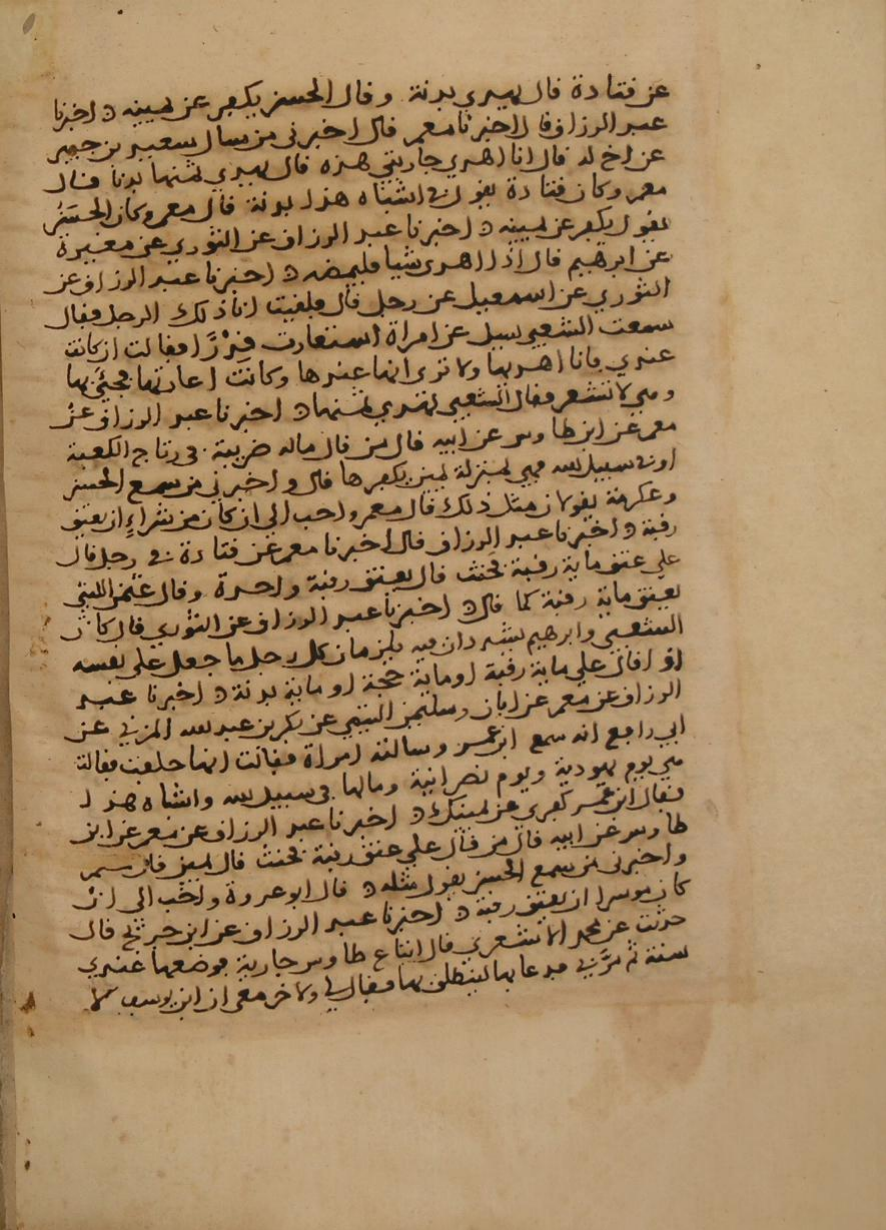 عن قتادة قال يهدي بدنة وقال الحسن يكفر عن يمينه اخبرنا
عبد الرزاق قال اخبرنا معمر قال اخبرني من سال سعيد بن جبير
عن اخ له قال انا اهدي جاريتي هذه قال يهدي ثمنها بدنا قال
معمر وكان قتادة يقول في اشباه هذا بدنة قال معمر وكان الحسن
يقول يكفر عن يمينه اخبرنا عبد الرزاق عن الثوري عن مغيرة
عن ابرهيم قال اذا اهدى شيا فليمضه اخبرنا عبد الرزاق عن
الثوري عن اسمعيل عن رجل قال فلقيت انا ذلك الرجل فقال
سمعت الشعبي سيل عن امراة استعارت قدرا فقالت ان كانت
عندي فانا اهديها ولا ترى انها عندها وكانت اعارتها فجئ بها
وهي لا تشعر فقال الشعبي تهدي ثمنها اخبرنا عبد الرزاق عن
معمر عن ابن طاوس عن ابيه قال من قال ماله ضريبة في رتاج الكعبة
او في سبيل الله فهي بمنزلة يمين يكفرها قال واخبرني من سمع الحسن
وعكرمة يقولان مثل ذلك قال معمر واحب الي ان كان من شراء ان يعتق
رقبة اخبرنا عبد الرزاق قال اخبرنا معمر عن قتادة في رجل قال
علي عتق ماية رقبة فحنث قال يعتق رقبة واحدة وقال عثمن البتي
يعتق ماية رقبة كما قال اخبرنا عبد الرزاق عن الثوري قال كان
الشعبي وابرهيم يشددان فيه يلزمان كل رجل ما جعل على نفسه
اذا قال علي ماية رقبة او ماية حجة او ماية بدنة اخبرنا عبد
الرزاق عن معمر عن ابان وسليمن التيمي عن بكر بن عبد الله المزني عن
ابي رافع انه سمع ابن عمر وسالته امراة فقالت انها حلفت فقالت
هي يوم يهودية ويوم نصرانية ومالها في سبيل الله واشباه هذا
فقال ابن عمر كفري عن يمينك اخبرنا عبد الرزاق عن معمر عن ابن
طاوس عن ابيه قال من قال علي عتق رقبة فحنث قال يمين قال معمر
واخبرني من سمع الحسن يقول مثله قال ابو عروة واحب الي ان
كان موسرا ان يعتق رقبة اخبرنا عبد الرزاق عن ابن جريج قال
حدثت عن محمد الاشعري قال ابتاع طاوس جارية فوضعها عندي
سنة ثم مر بي فدعا بها لينطلق بها فقال لي ولاخر معي ان ابن يوسف